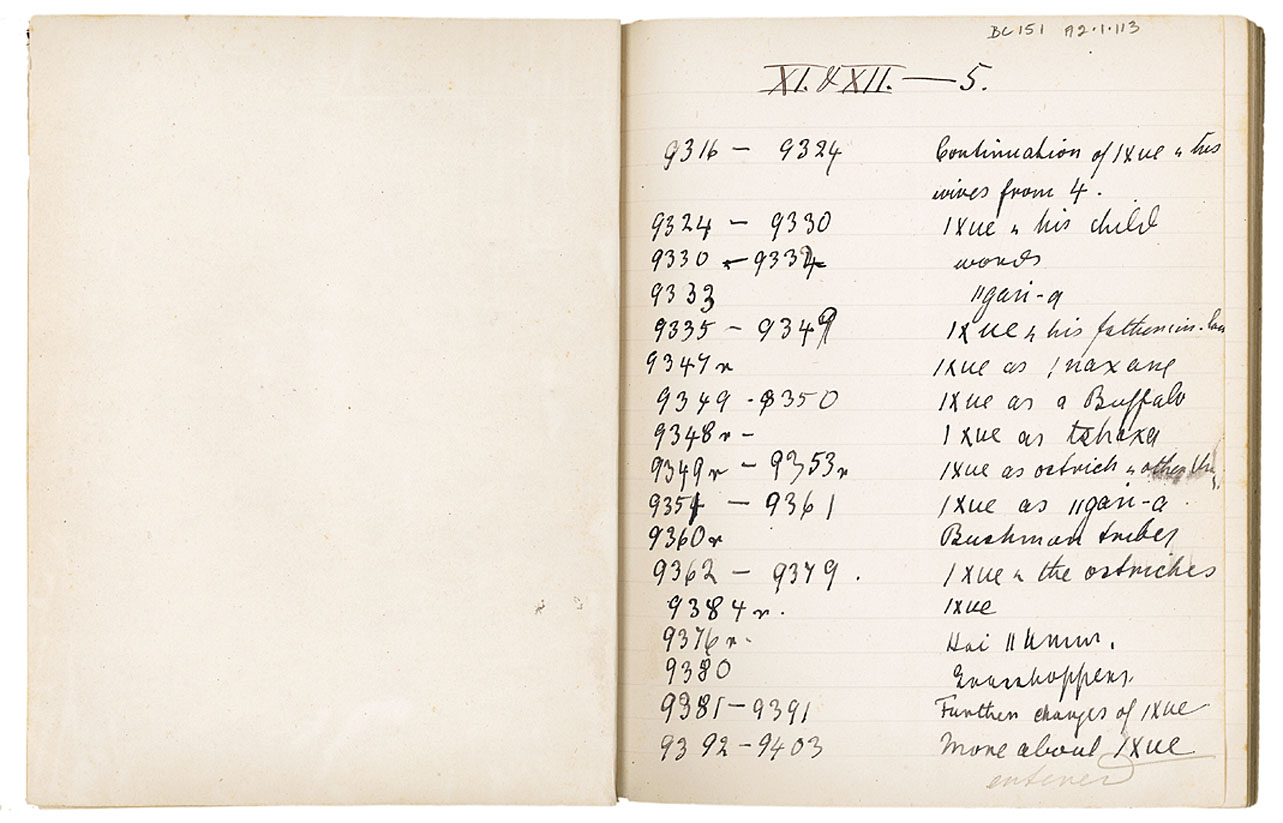 BC 151 A2.1.113
XI. & XII. — 5.
9316 — 9324 Continuation of |Xue & his
wives from 4.
9324 — 9330 |Xue & his child
9330 — words
9333 ||gari-a
9335 — 9349 |Xue & his father-in-law
9347v |Xue as
9349 - 9350 |Xue as a Buffalo
9348v — |Xue as
9349v — 9353v |Xue as ostrich & other
9354 — 9361 |Xue as ||gari-a
9360v Bushman tribes
9362 — 9379. |Xue & the ostriches
9384v. |Xue
9376v.
9380 Grasshoppers.
9381 — 9391 Further changes of |Xue
9392 — 9403 More about |Xue
entered